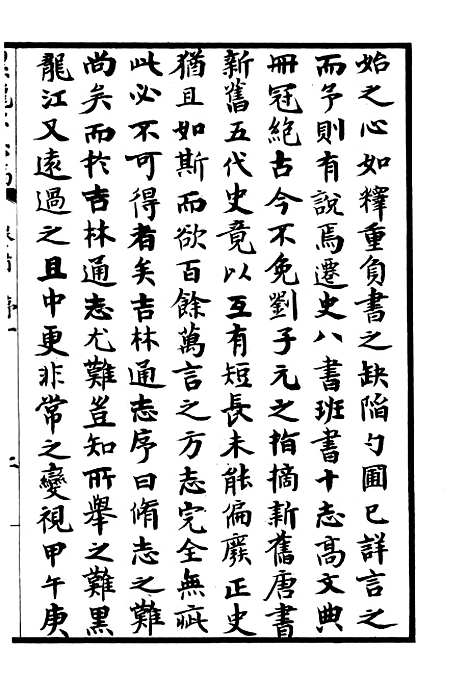 始之心如釋重負書之缺陷勺圃已詳言之
而予則有說焉遷史八書班書十志高文典
冊冠絕古今不免劉子元之指摘新舊唐書
新舊五代史竟以互有短長未能偏廢正史
猶且如斯而欲百餘萬言之方志完全無疵
此必不可得者矣吉林通志序曰脩志之難
尚矣而於吉林通志尤難豈知所舉之難黑
龍江又遠過之且中更非常之變視甲午庚